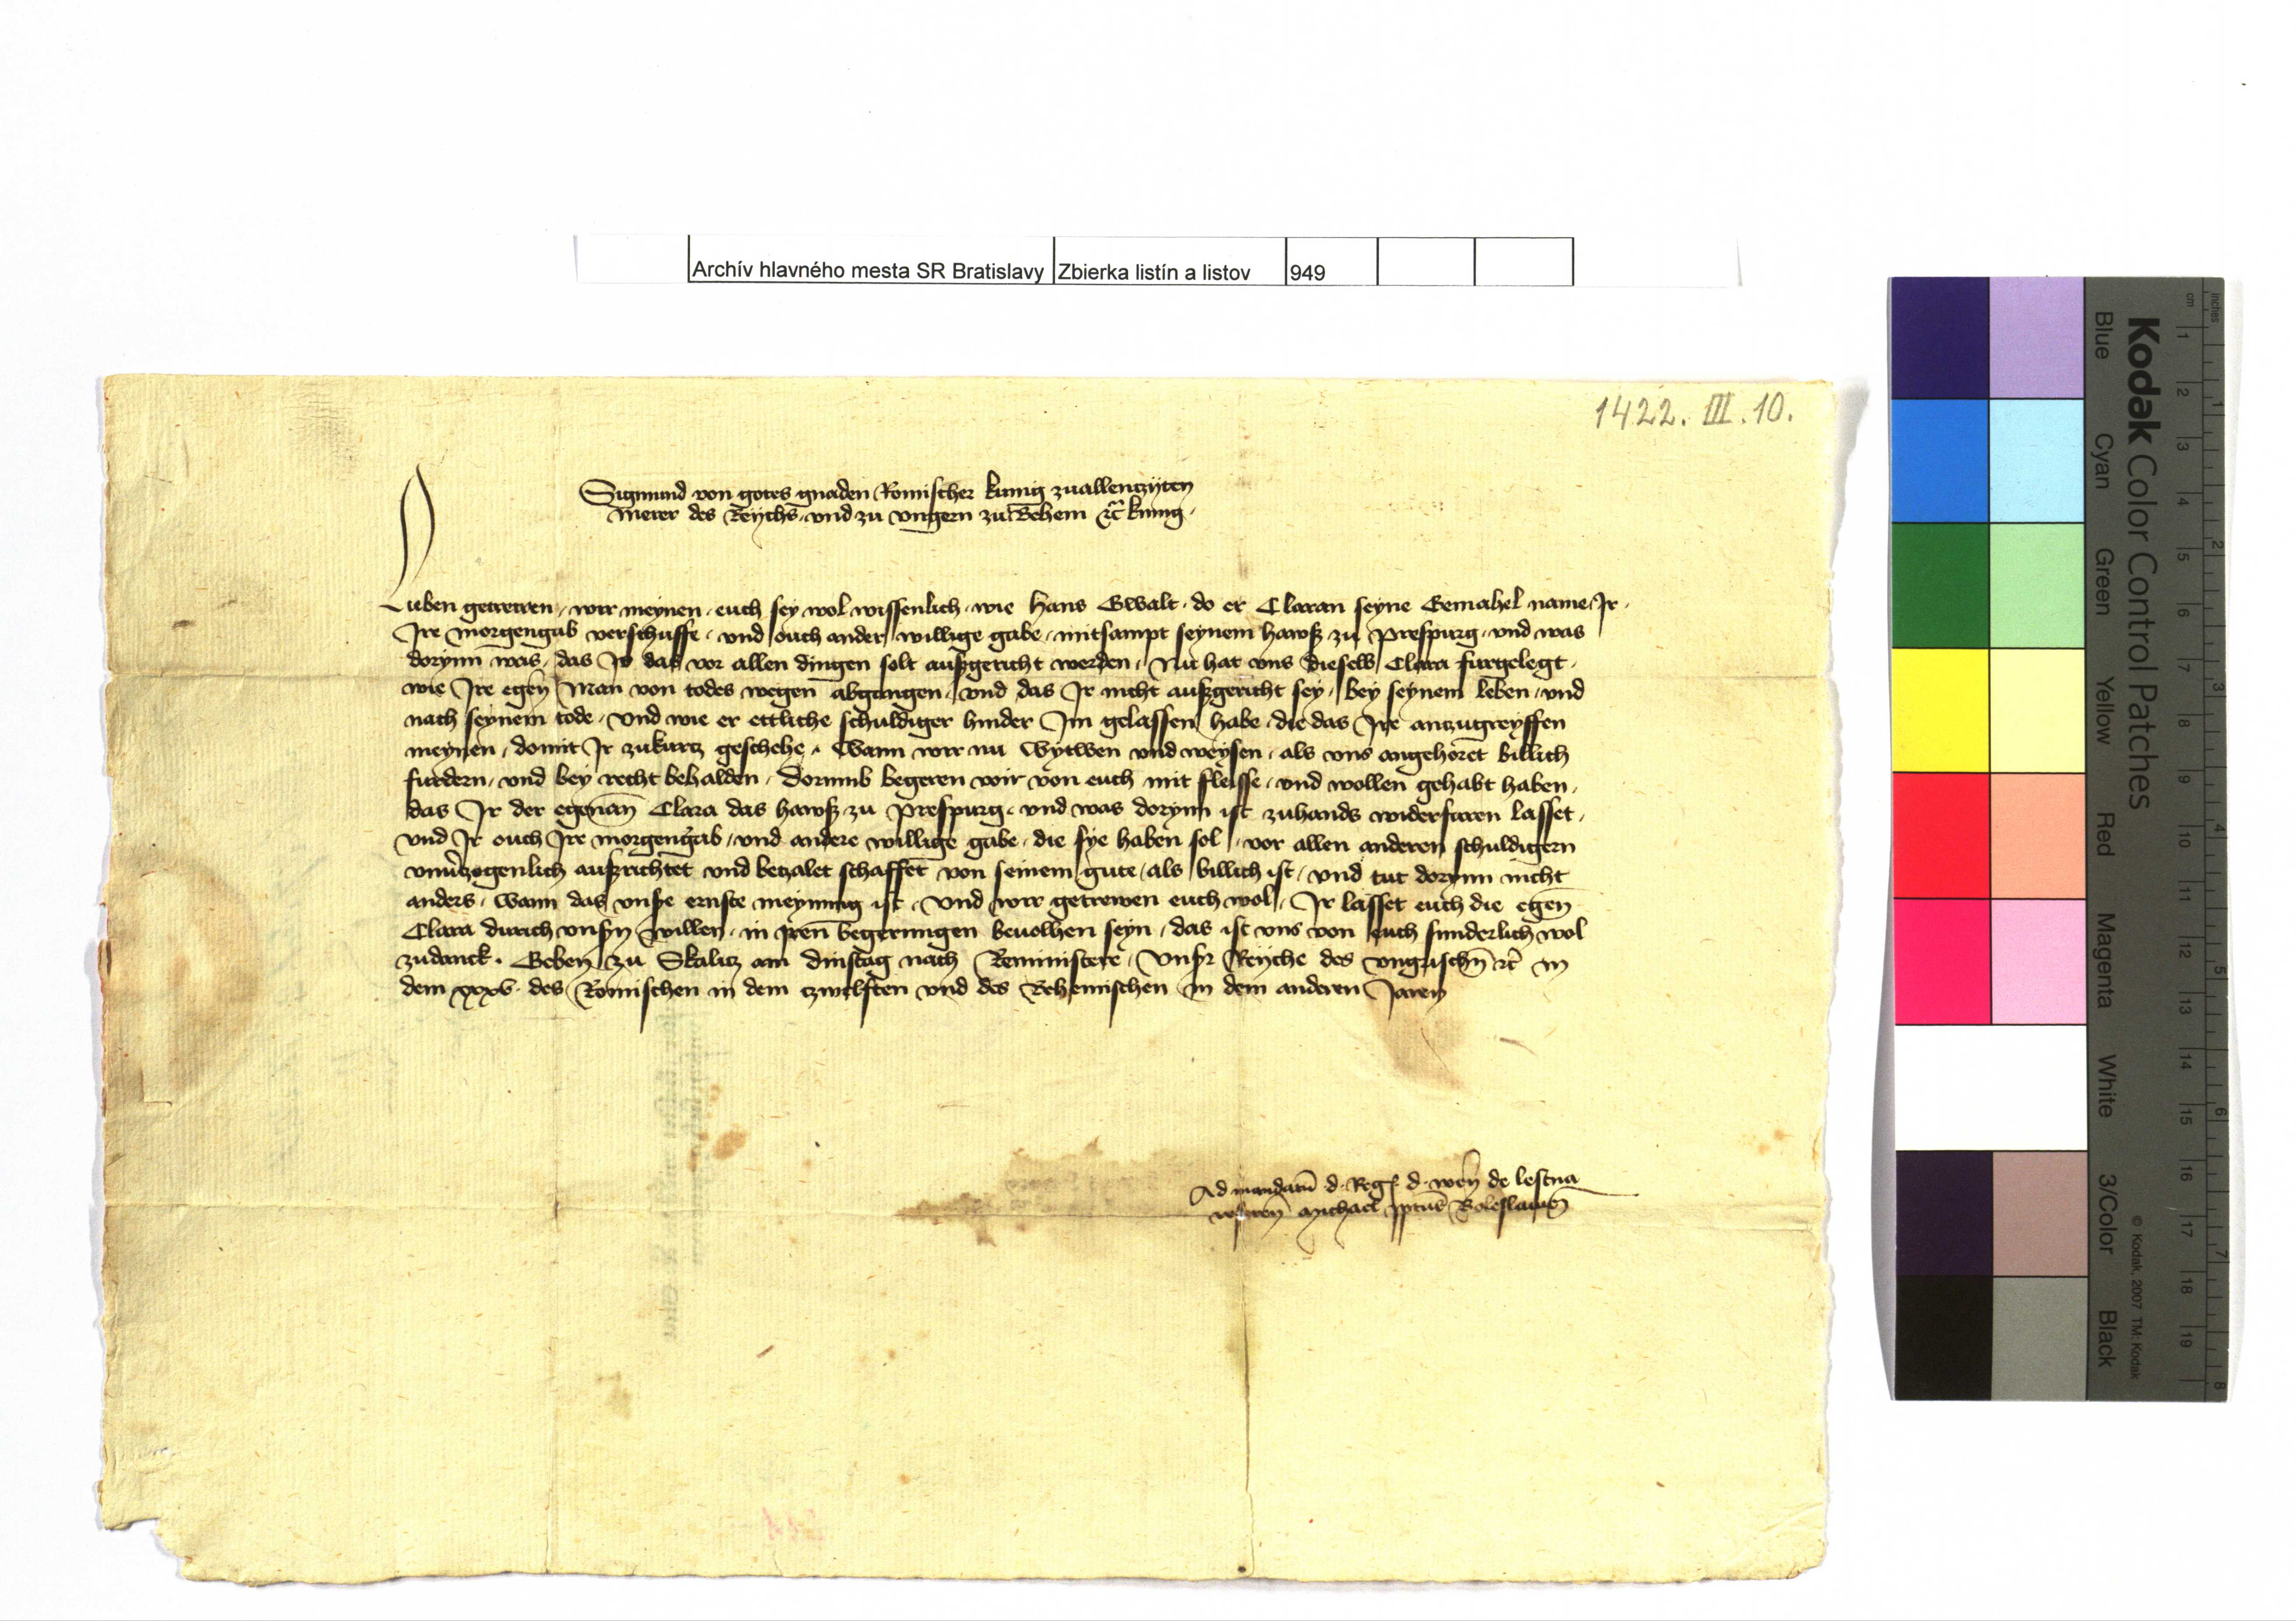 Archív hlavného mesta SR Bratislavy Zbierka listín a listov 949
1422. III. 10.
Sigmund von gotes gnaden Romischer kunig zuallenczyten
merer des Reychs und zu Ungern zu Behem etc̃ kunig
Lieben getrewen, wir meynen, euch sey wol wissenlich, wie Hans Gwalt, do er Claran seyne Gemahel name, Ir,
Ire morgengab verschuffe, und ouch ander willige gabe, mitsampt seynem hawß zu Prespurg, und was
dorynn was, das Ir das vor allen dingen solt außgericht werden, Nu hat uns dieselb Clara furgelegt,
wie Ire egen̄ Man von todes wegen abgangen, und das Ir nicht außgericht sey, bey seynem leben, und
nach seynem tode, Und wie er ettliche schuldiger hinder Im gelassen habe, die das Ire anczugreyffen
meynen, domit Ir zukurtz geschehe, Wann wir nu Wytwen und weysen, als uns angehoret billich
furdern, und bey recht behalden, Dorumb begeren wir von euch mit fleisse, und wollen gehabt haben,
das Ir der egenan̄ Clara das hawß zu Prespurg, und was dorynn ist zuhands widerfaren lasset,
und Ir ouch Ire morgengab, und andere willige gabe, die sye haben sol, vor allen anderen schuldigern
unuerzogenlich außrichtet und beczalet schaffet von seinem gute, als billich ist, und tut dorynn nicht
anders, Wann das unsre ernste meynung ist, Und wir getrewen euch wol, Ir lasset euch die egen̄
Clara durich unsrn willen, in Iren begerungen beuolhen seyn, das ist uns von euch sunderlich wol
zudanck. Geben zu Skalicz am dinstag nach Reministere, Unsr Reyche des ungrischn̄ etc̃ in
dem xxxv. des Romischen in dem czwelften und des Behemischen in dem anderen Jaren
Ad mandatū d. Reg. d. wen̄ de lestna
Michael pptus Boleslauien̄
Kodak Color Control Patches
Blue Cyan Green Yellow Red Magenta White 3/Color Black
© Kodak, 2007 TM: Kodak
inches 1 2 3 4 5 6 7 8
cm 1 2 3 4 5 6 7 8 9 10 11 12 13 14 15 16 17 18 19